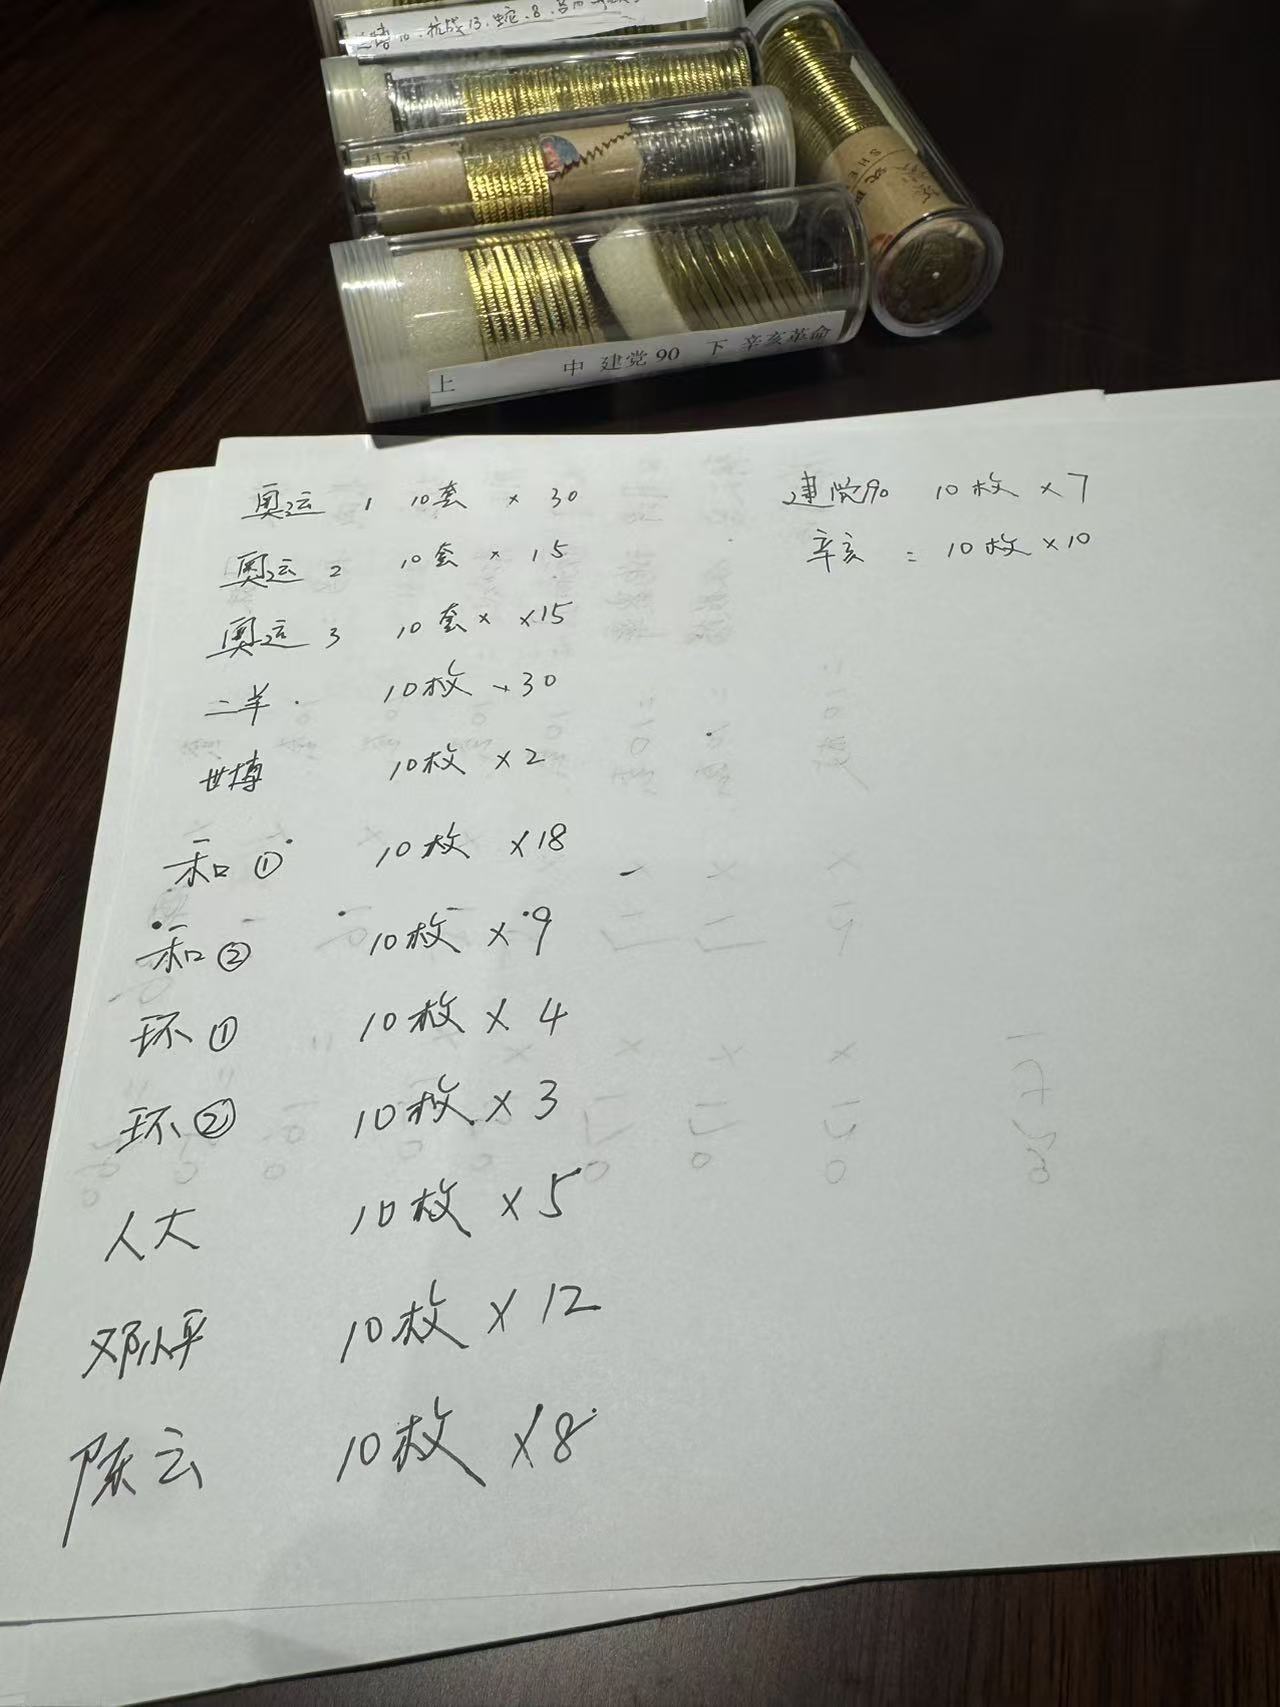 抗战13.蛇.8.
上 中 建党90 下 辛亥革命
奥运 1 10套 × 30
奥运 2 10套 × 15
奥运 3 10套 × ×15
二羊. 10枚 × 30
世博 10枚 × 2
和① 10枚 ×18
和② 10枚 × 9
环① 10枚 × 4
环② 10枚 × 3
人大 10枚 × 5
邓小平 10枚 × 12
陈云 10枚 ×8
建党90 10枚 ×7
辛亥 : 10枚 ×10